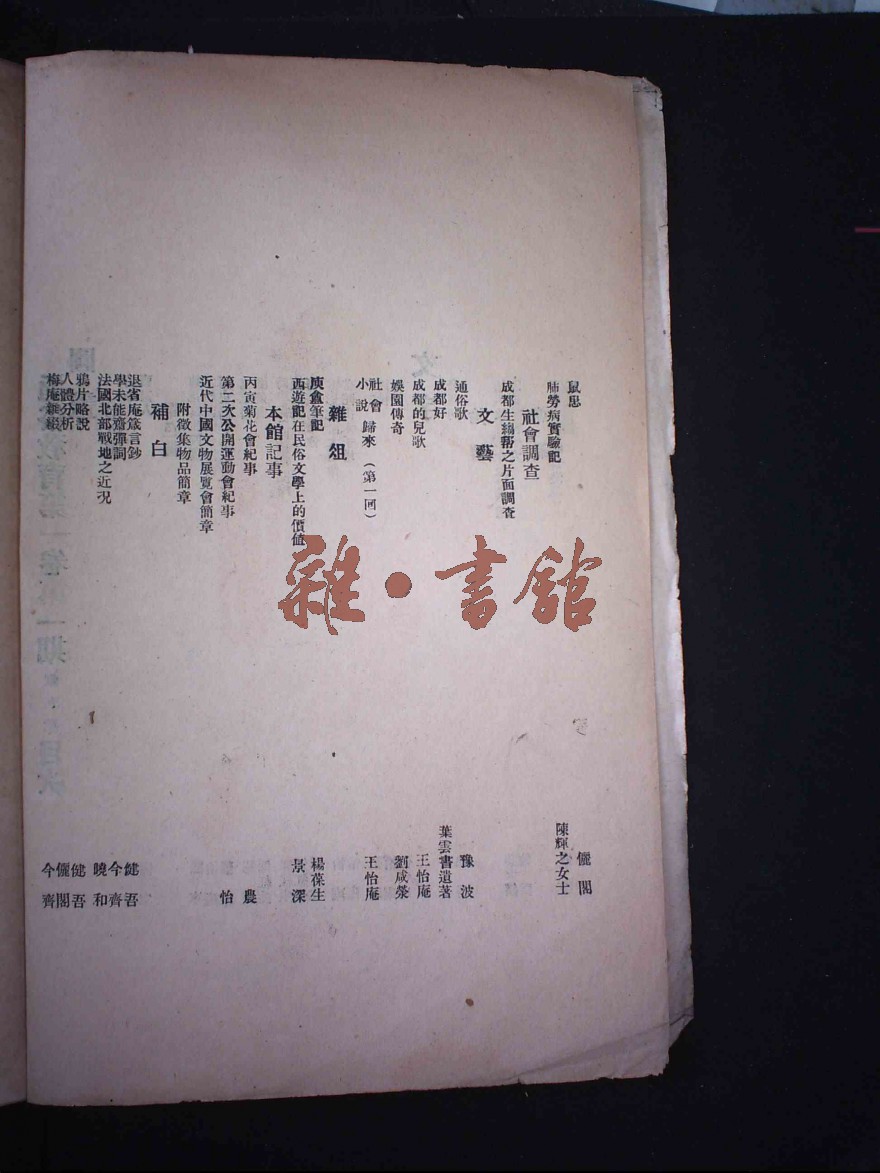 鼠患　儷閣
肺勞病實驗記　陳輝之女士
社會調查
成都生縐幫之片面調查
文藝
通俗歌　豫波
成都好　葉雲書遺著
成都的兒歌　王怡庵
娛園傳奇　劉咸滎
社會小說　歸來（第一回）　王怡庵
雜俎
庚盦筆記　楊葆生
西遊記在民俗文學上的價値　景深
本館記事
丙寅菊花會紀事　農
第二次公開運動會紀事　怡
近代中國文物展覽會簡章
附徵集物品簡章
補白
退省庵箴言鈔　健吾
學未能齋彈詞　今齊
法國北部戰地之近況　曉和
鴉片略說　健吾
人體分析　儷閣
梅庵雜綴　今齊
雜·書館